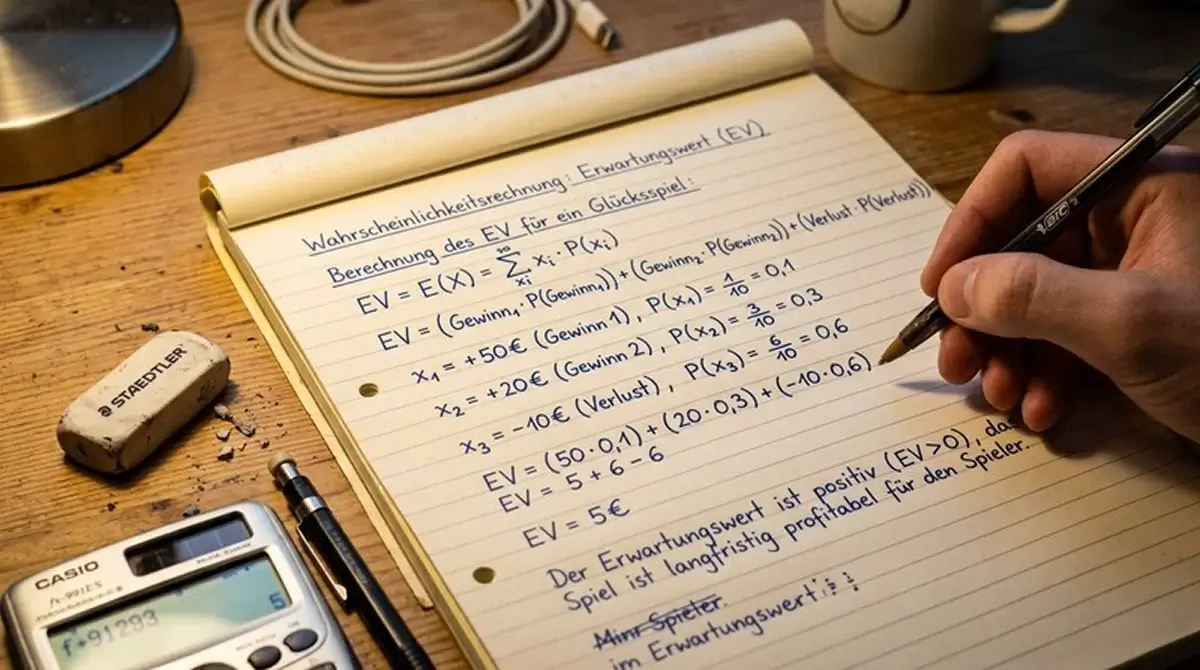 Wahrscheinlichkeitsrechnung: Erwartungswert (EV)
Berechnung des EV für ein Glücksspiel:
EV = E(X) = ∞∑xᵢ xᵢ · P(xᵢ)
EV = (Gewinn₁ · P(Gewinn₁)) + (Gewinn₂ · P(Gewinn₂)) + (Verlust · P(Verlust))
x₁ = +50€ (Gewinn 1), P(x₁) = 1/10 = 0,1
x₂ = +20€ (Gewinn 2), P(x₂) = 3/10 = 0,3
x₃ = -10€ (Verlust), P(x₃) = 6/10 = 0,6
EV = (50·0,1) + (20·0,3) + (-10·0,6)
EV = 5 + 6 - 6
EV = 5€
Der Erwartungswert ist positiv (EV>0), das
Spiel ist langfristig profitabel für den Spieler.
Spieler.
im Erwartungswert
BIC
STAEDTLER
CASIO
fx-991ES
5